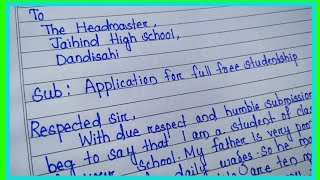 To
The Headmaster,
Jaihind High School,
Dandisahi
Sub: Application for full free studentship
Respected sir,
With due respect and humble submission
beg to say that I am a student of clas
School. My father is very poor
daily wages. So he
are ten